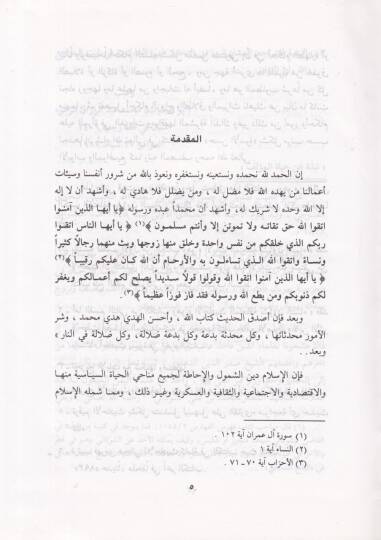 المقدمة
إن الحمد لله نحمده ونستعينه ونستغفره ونعوذ بالله من شرور أنفسنا وسيئات
أعمالنا من يهده الله فلا مضل له ، ومن يضلل فلا هادي له ، وأشهد أن لا إله
إلا الله وحده لا شريك له، وأشهد أن محمداً عبده ورسوله ﴿يا أيها الذين آمنوا
اتقوا الله حق تقاته ولا تموتن إلا وأنتم مسلمون﴾(١) ﴿يا أيها الناس اتقوا
ربكم الذي خلقكم من نفس واحدة وخلق منها زوجها وبث منهما رجالاً كثيراً
ونساءً واتقوا الله الذي تساءلون به والأرحام أن الله كان عليكم رقيباً﴾(٢)
﴿يا أيها الذين آمنوا اتقوا الله وقولوا قولاً سديداً يصلح لكم أعمالكم ويغفر
لكم ذنوبكم ومن يطع الله ورسوله فقد فاز فوزاً عظيماً﴾(٣).
وبعد فإن أصدق الحديث كتاب الله ، وأحسن الهدي هدي محمد ، وشر
الأمور محدثاتها ، وكل محدثة بدعة وكل بدعة ضلالة، وكل ضلالة في النار»
وبعد..
فإن الإسلام دين الشمول والإحاطة لجميع مناحي الحياة السياسية منها
والاقتصادية والاجتماعية والثقافية والعسكرية وغير ذلك ، ومما شمله الإسلام
(١) سورة آل عمران آية ١٠٢ .
(٢) النساء آية ١
(٣) الأحزاب آية ٧٠ ـ ٧١ .
٥